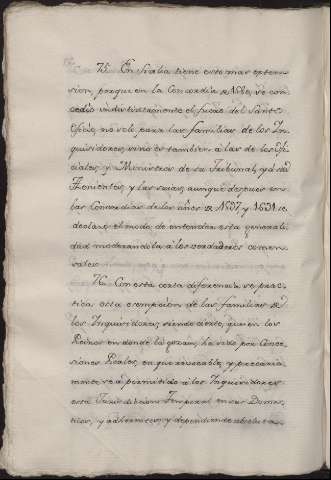 75. En Sicilia tiene esto mas exten-
sion, porque en la Concordia de 1580, se con-
cedió indistintamente el fuero del Santo
Oficio, no solo para las familias de los In-
quisidores, sino es tambien à las de los Ofi-
ciales, y Ministros de su Tribunal, y à sus
Thenientes, y las suias, aunque despues en
las Concordias de los años de 1597, y 1631. se
declaró el modo de entender esta generali-
dad moderandola à los verdaderos comen-
sales.
76. Con esta corta diferencia se prac-
tica esta esempcion de las familias de
los Inquisidores, siendo cierto, que en los
Reinos en donde la gozan, ha sido por Conce-
siones Reales, en que revocable, y precaria-
mente, se à permitido à los Inquisidores
esta Jurisdiccion Temporal en sus Domes-
ticos, y adherentes, y dependiendo absoluta-